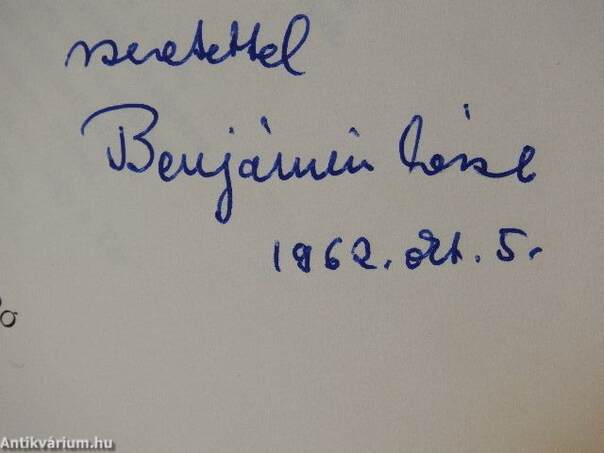 szeretettel
Benjámin László
1962. okt. 5.
Antikvárium.hu